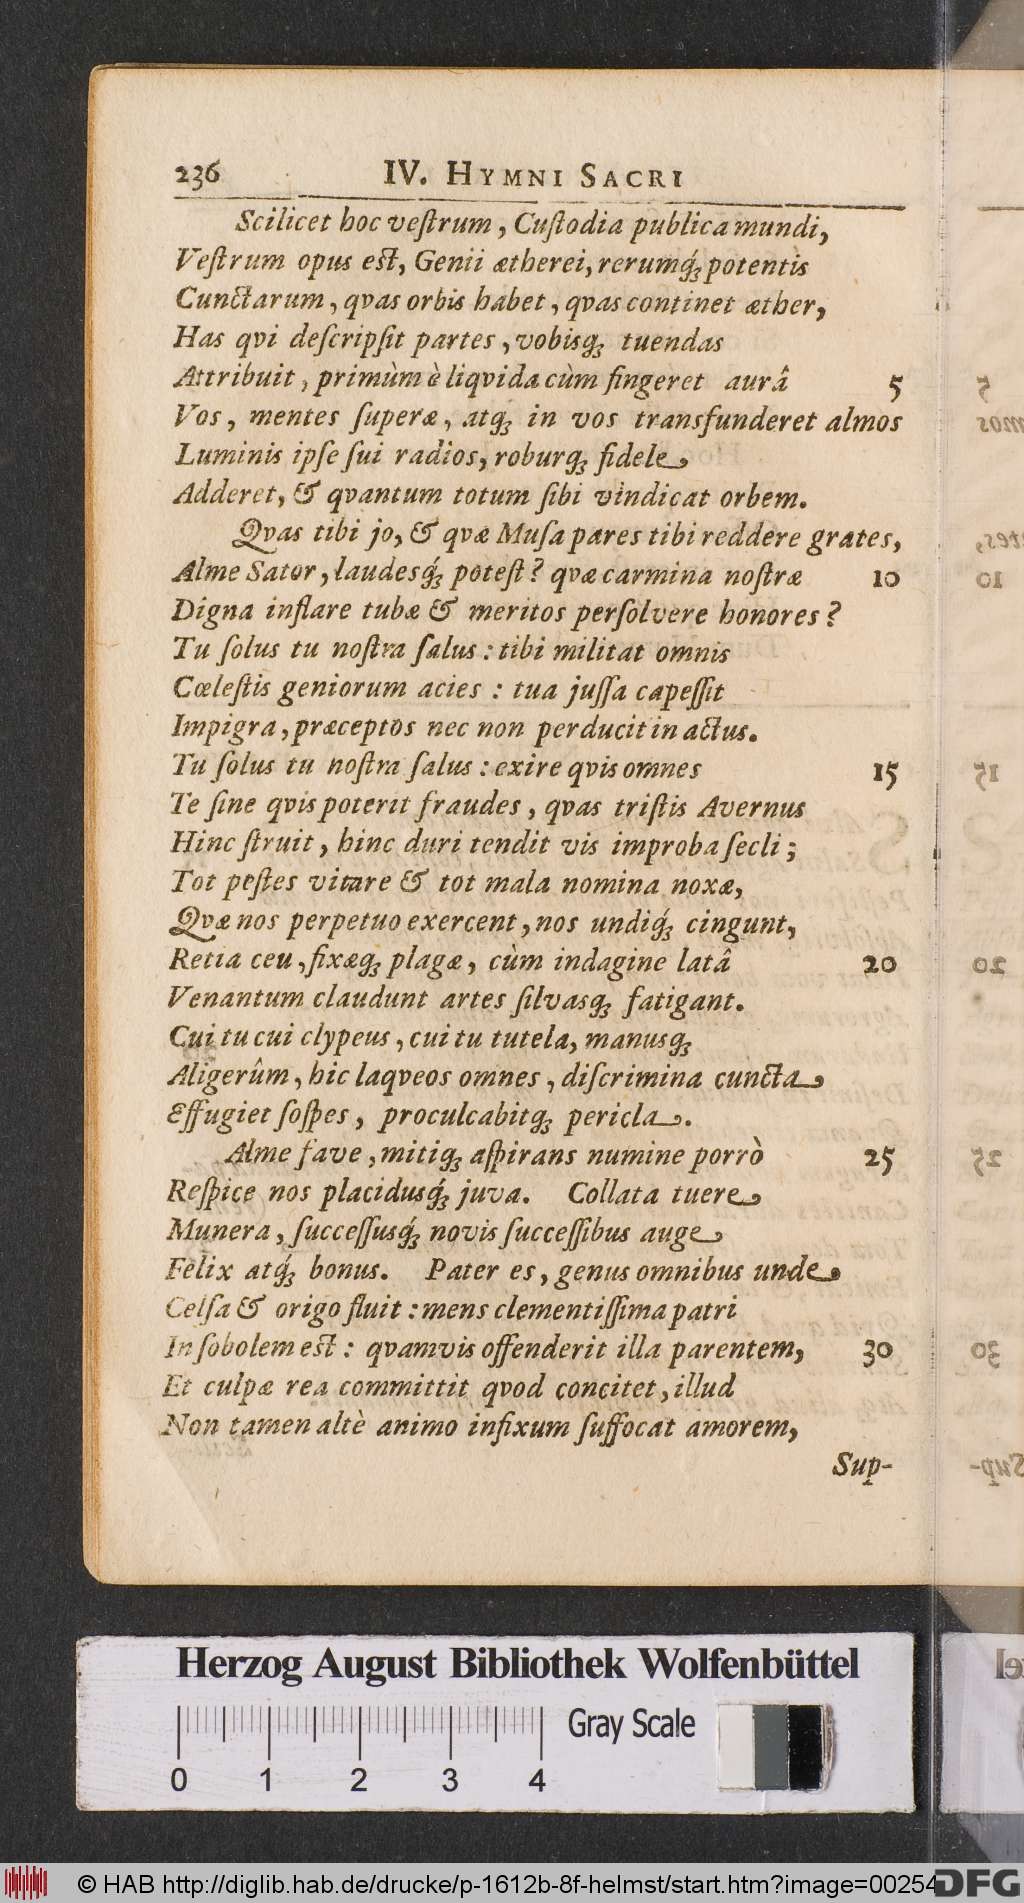 236 IV. HYMNI SACRI
Scilicet hoc veſtrum, Cuſtodia publica mundi,
Veſtrum opus est, Genii ætherei, rerumq́ꝫ potentis
Cunctarum, qvas orbis habet, qvas continet æther,
Has qvi deſcripſit partes, vobisqꝫ tuendas
Attribuit, primùm è liqvida cùm fingeret aurâ 5
Vos, mentes ſuperæ, atqꝫ in vos transfunderet almos
Luminis ipſe ſui radios, roburqꝫ fidele
Adderet, & qvantum totum ſibi vindicat orbem.
Qvas tibi jo, & qvæ Muſa pares tibi reddere grates,
Alme Sator, laudesq́ꝫ poteſt? qvæ carmina noſtræ 10
Digna inflare tubæ & meritos perſolvere honores?
Tu ſolus tu noſtra ſalus: tibi militat omnis
Cœleſtis geniorum acies: tua juſſa capeſſit
Impigra, præceptos nec non perducit in actus.
Tu ſolus tu noſtra ſalus: exire qvis omnes 15
Te ſine qvis poterit fraudes, qvas triſtis Avernus
Hinc ſtruit, hinc duri tendit vis improba ſecli;
Tot peſtes vitare & tot mala nomina noxæ,
Qvæ nos perpetuo exercent, nos undiq́ꝫ cingunt,
Retia ceu, fixæqꝫ plagæ, cùm indagine latâ 20
Venantum claudunt artes ſilvasqꝫ fatigant.
Cui tu cui clypeus, cui tu tutela, manusqꝫ
Aligerûm, hic laqveos omnes, diſcrimina cuncta
Effugiet ſoſpes, proculcabitqꝫ pericla.
Alme fave, mitiqꝫ aſpirans numine porrò 25
Reſpice nos placidusq́ꝫ juva. Collata tuere
Munera, ſucceſſusq́ꝫ novis ſucceſſibus auge
Felix atq́ꝫ bonus. Pater es, genus omnibus unde
Celſa & origo fluit: mens clementiſſima patri
In ſobolem est: qvamvis offenderit illa parentem, 30
Et culpæ rea committit qvod concitet, illud
Non tamen altè animo infixum ſuffocat amorem,
Sup-
Herzog August Bibliothek Wolfenbüttel
Gray Scale
0 1 2 3 4
© HAB http://diglib.hab.de/drucke/p-1612b-8f-helmst/start.htm?image=00254
DFG